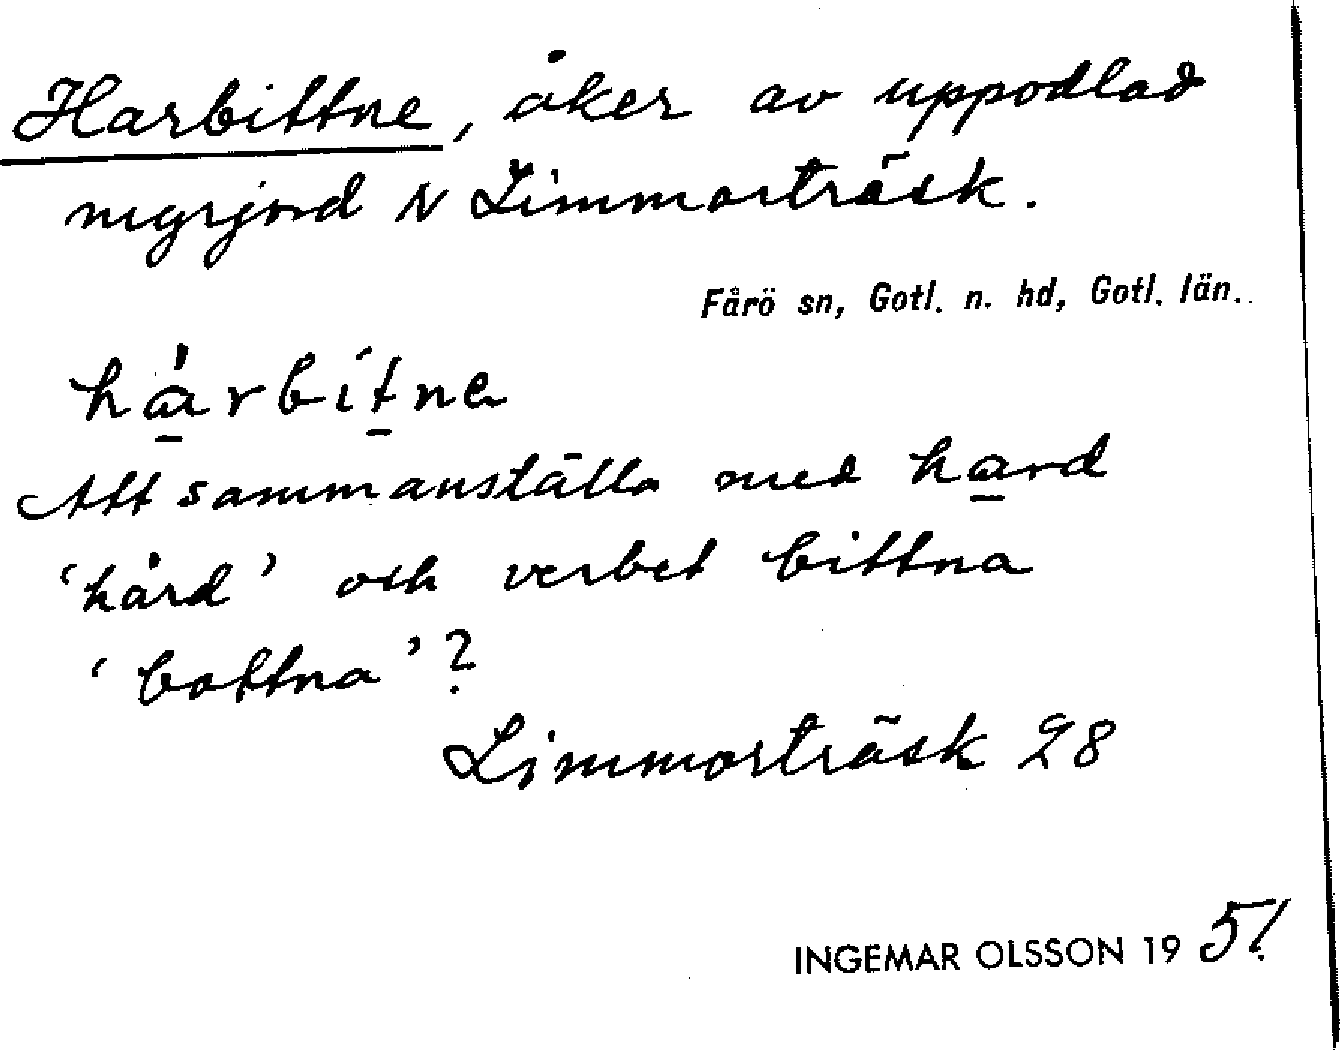 Harbittne, åker av uppodlad
myrjord N Limmorträsk.
Fårö sn, Gotl. n. hd, Gotl. län.
ha̱rbiṯne
Att sammanställa med ha̱rd
‘hård’ och verbet bittna
‘bottna’?
Limmorträsk 28
INGEMAR OLSSON 1951